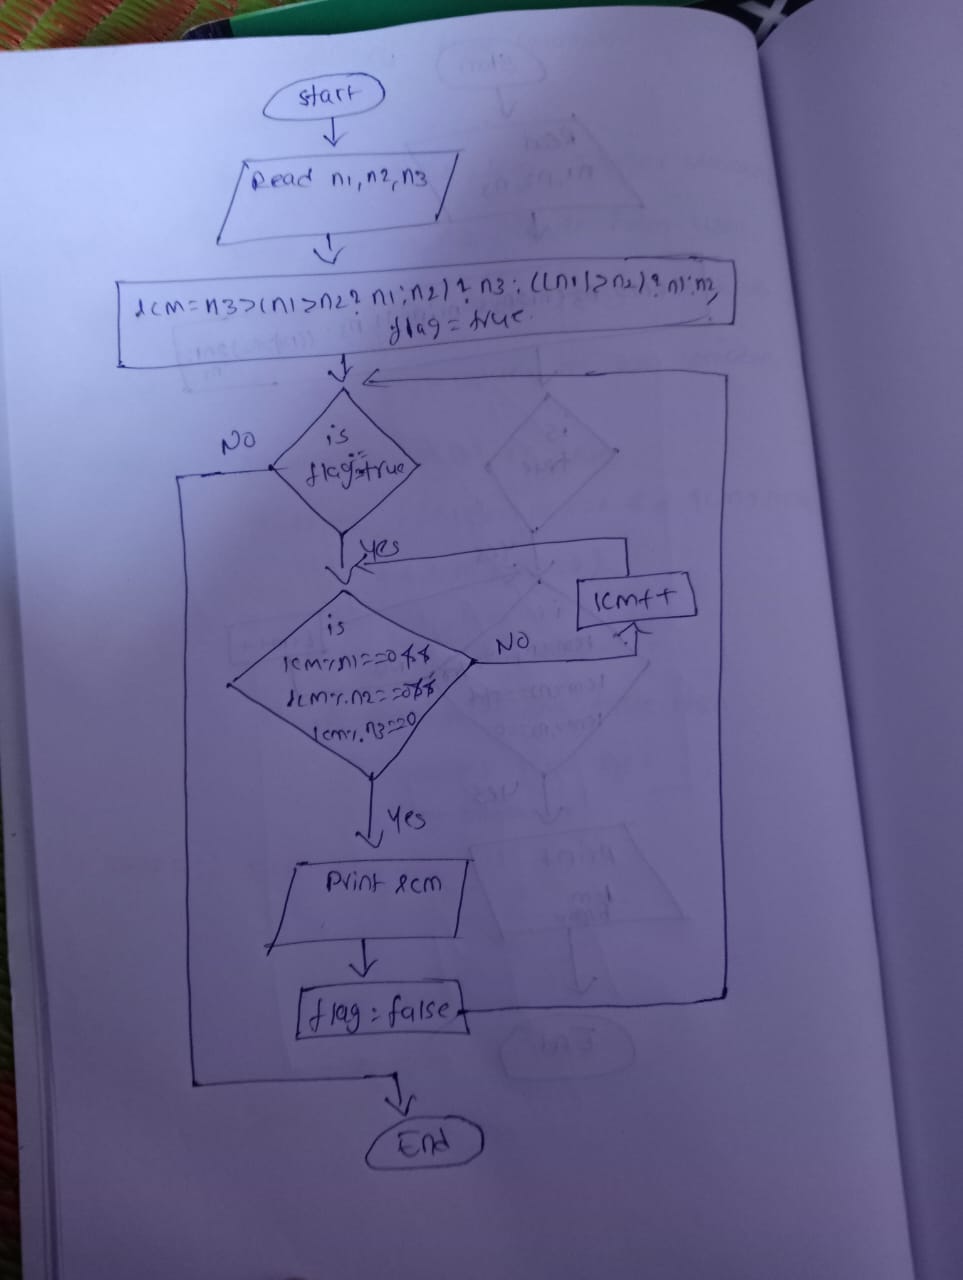 start
Read n1, n2, n3
lcm=n3>(n1>n2? n1:n2)? n3: ((n1>n2)? n1:n2,
flag = true.
is
flag==true
No
Yes
lcm++
is
lcm%n1==0&&
lcm%n2==0&&
lcm%n3==0
NO
Yes
Print lcm
flag = false
End